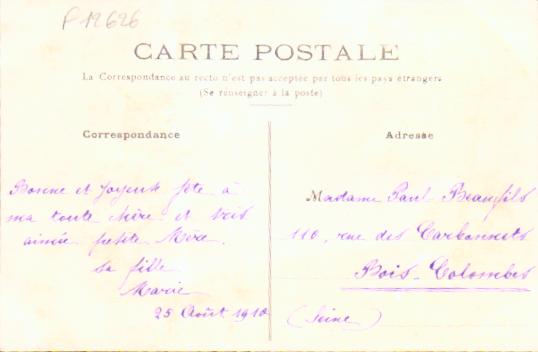 F12626
CARTE POSTALE
La Correspondance au recto n'est pas acceptée par tous les pays étrangers
(Se renseigner à la poste)
Correspondance
Bonne et joyeuse fête à
ma toute chère et très
aimée petite Mère.
sa fille
Marie
25 Août 1910
Adresse
Madame Paul Beaufils
110, rue des Carbonnets
Bois-Colombes
(Seine)